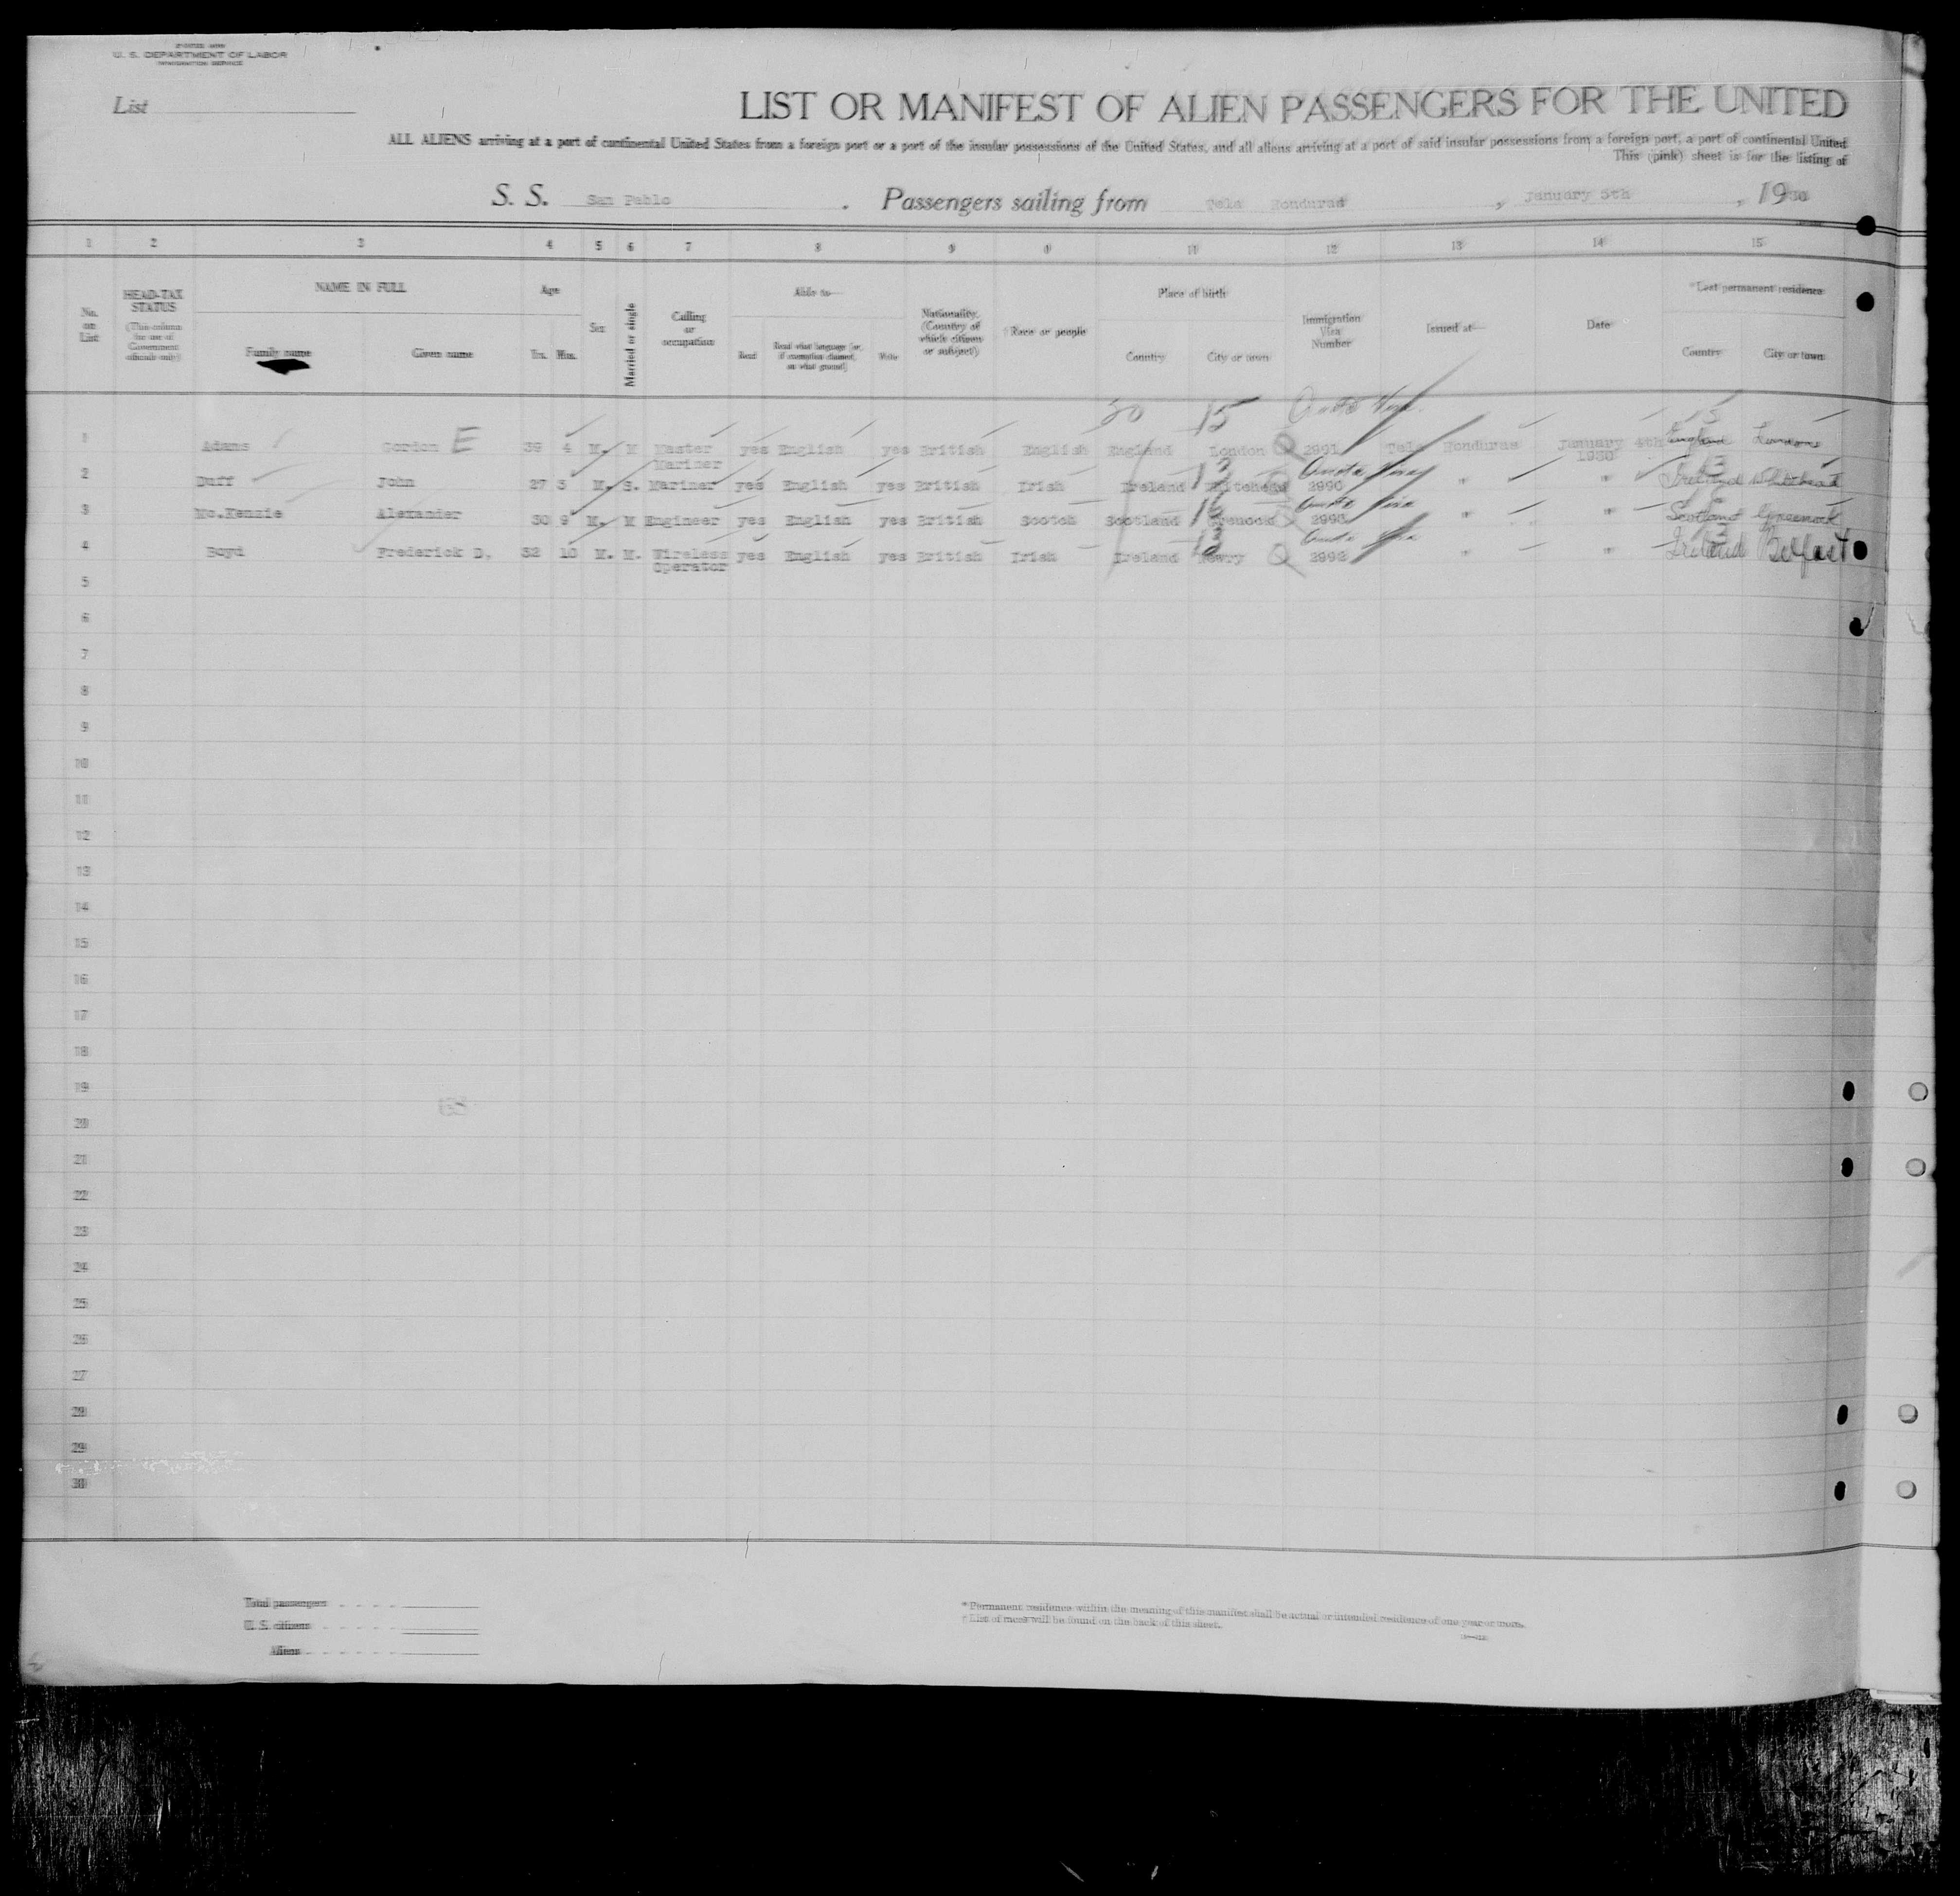 U. S. DEPARTMENT OF LABOR
IMMIGRATION SERVICE
List
LIST OR MANIFEST OF ALIEN PASSENGERS FOR THE UNITED
ALL ALIENS arriving at a port of continental United States from a foreign port or a port of the insular possessions of the United States, and all aliens arriving at a port of said insular possessions from a foreign port, a port of continental United
This (pink) sheet is for the listing of
S. S. San Pablo . Passengers sailing from Tela Honduras , January 5th , 1930
1 2 3 4 5 6 7 8 9 11 12 13 14 15
No. on List
HEAD-TAX STATUS
(This column for use of Government officials only)
NAME IN FULL
Family name Given name
Age
Yrs. Mos.
Sex
Married or single
Calling or occupation
Able to—
Read Read what language (or, if exemption claimed, on what ground) Write
Nationality. (Country of which citizen or subject)
†Race or people
Place of birth
Country City or town
Immigration Visa Number
Issued at—
Date
*Last permanent residence
Country City or town
30 15 Quota Visa 15
1 Adams Gordon E 39 4 M. M Master Mariner yes English yes British English England London Q 2991 Tela Honduras January 4th 1930 England London
13 Quota Visa 13
2 Duff John 27 3 M. S. Mariner yes English yes British Irish Ireland Whitehead 2990 " " Ireland Whitehead
Quota Visa
3 Mc.Kenzie Alexander 30 9 M. M Engineer yes English yes British Scotch Scotland Greenock 2993 " " Scotland Greenock
13 Quota Visa 13
4 Boyd Frederick D. 32 10 M. M. Wireless Operator yes English yes British Irish Ireland Newry Q 2992 " " Ireland Belfast
5
6
7
8
9
10
11
12
13
14
15
16
17
18
19
20
21
22
23
24
25
26
27
28
29
30
Total passengers
U. S. citizens
Aliens
* Permanent residence within the meaning of this manifest shall be actual or intended residence of one year or more.
† List of races will be found on the back of this sheet.